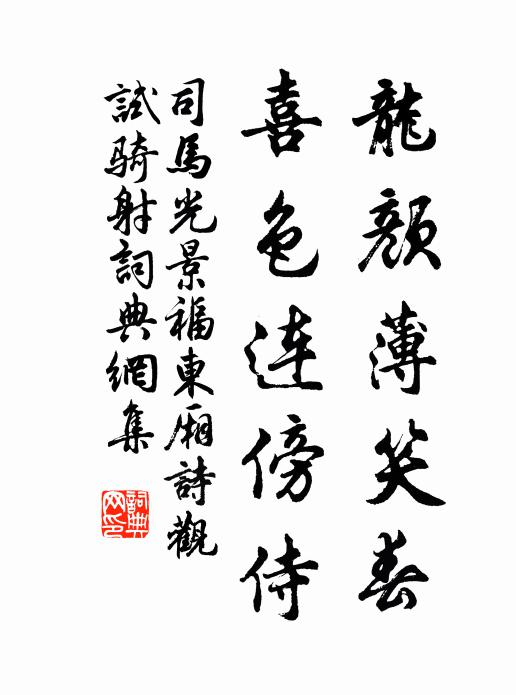 龍顏薄笑春
喜色連傍侍
司馬光景福東廂詩觀
試騎射詞典網集
詞典
网印